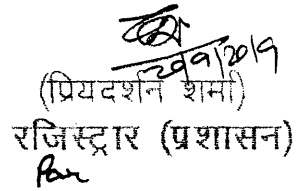 20/9/2019
(प्रियदर्शन शर्मा)
रजिस्ट्रार (प्रशासन)